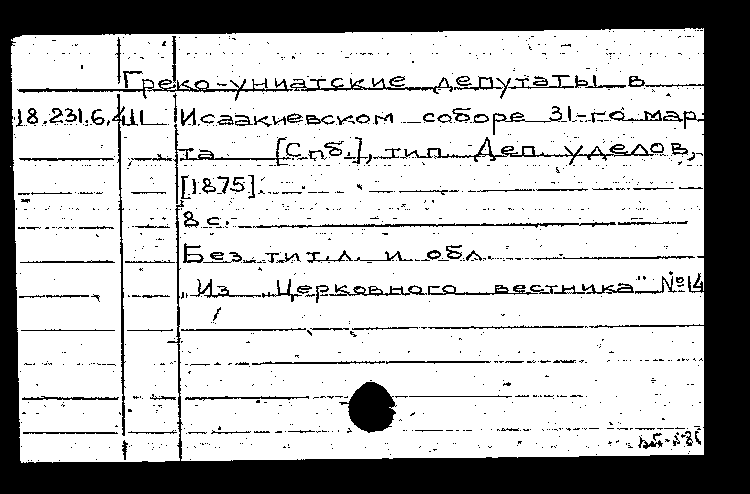 Греко-униатские депутаты в
18.231.6.411 Исаакиевском соборе 31-го мар-
та [Спб.], тип. Деп. уделов,
[1875].
8 с.
Без тит. л. и обл.
"Из "Церковного вестника" №14